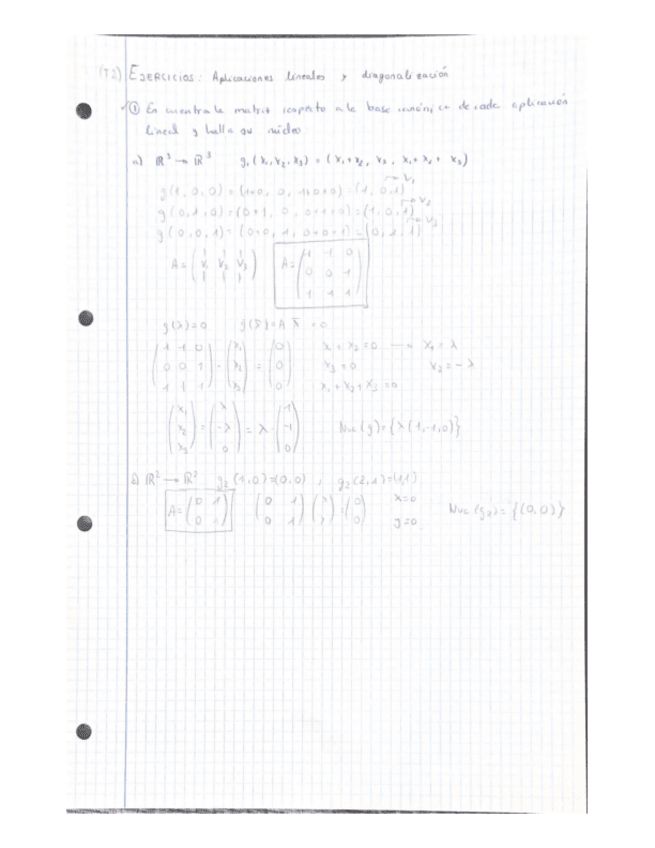 (T2) EJERCICIOS: Aplicaciones lineales y diagonalización
① Encuentra la matriz respecto a la base canónica de cada aplicación
lineal y halla su núcleo
a) ℝ³ → ℝ³ g₁(x₁,x₂,x₃) = (x₁+x₂, x₃, x₁+x₂+x₃)
g(1,0,0)=(1+0, 0, 1+0+0)=(1,0,1) → v₁
g(0,1,0)=(0+1, 0, 0+1+0)=(1,0,1) → v₂
g(0,0,1)=(0+0, 1, 0+0+1)=(0,1,1) → v₃
A = ( v₁ v₂ v₃ ) A = ( 1 1 0
0 0 1
1 1 1 )
g(x̄)=0 g(x̄)=A x̄ = 0
( 1 1 0 ) ( x₁ ) ( 0 ) x₁+x₂=0 → x₁=λ
( 0 0 1 ) · ( x₂ ) = ( 0 ) x₃=0 x₂=-λ
( 1 1 1 ) ( x₃ ) ( 0 ) x₁+x₂+x₃=0
( x₁ ) ( λ ) ( 1 )
( x₂ ) = ( -λ ) = λ · ( -1 ) Nuc(g)={λ(1,-1,0)}
( x₃ ) ( 0 ) ( 0 )
ℝ² → ℝ² g₂(1,0)=(0,0) , g₂(2,1)=(1,1)
A= ( 0 1 ) ( 0 1 ) ( x ) = ( 0 ) x=0 Nuc(g₂)={(0,0)}
( 0 ) ( 0 1 ) ( ) ( 0 ) y=0